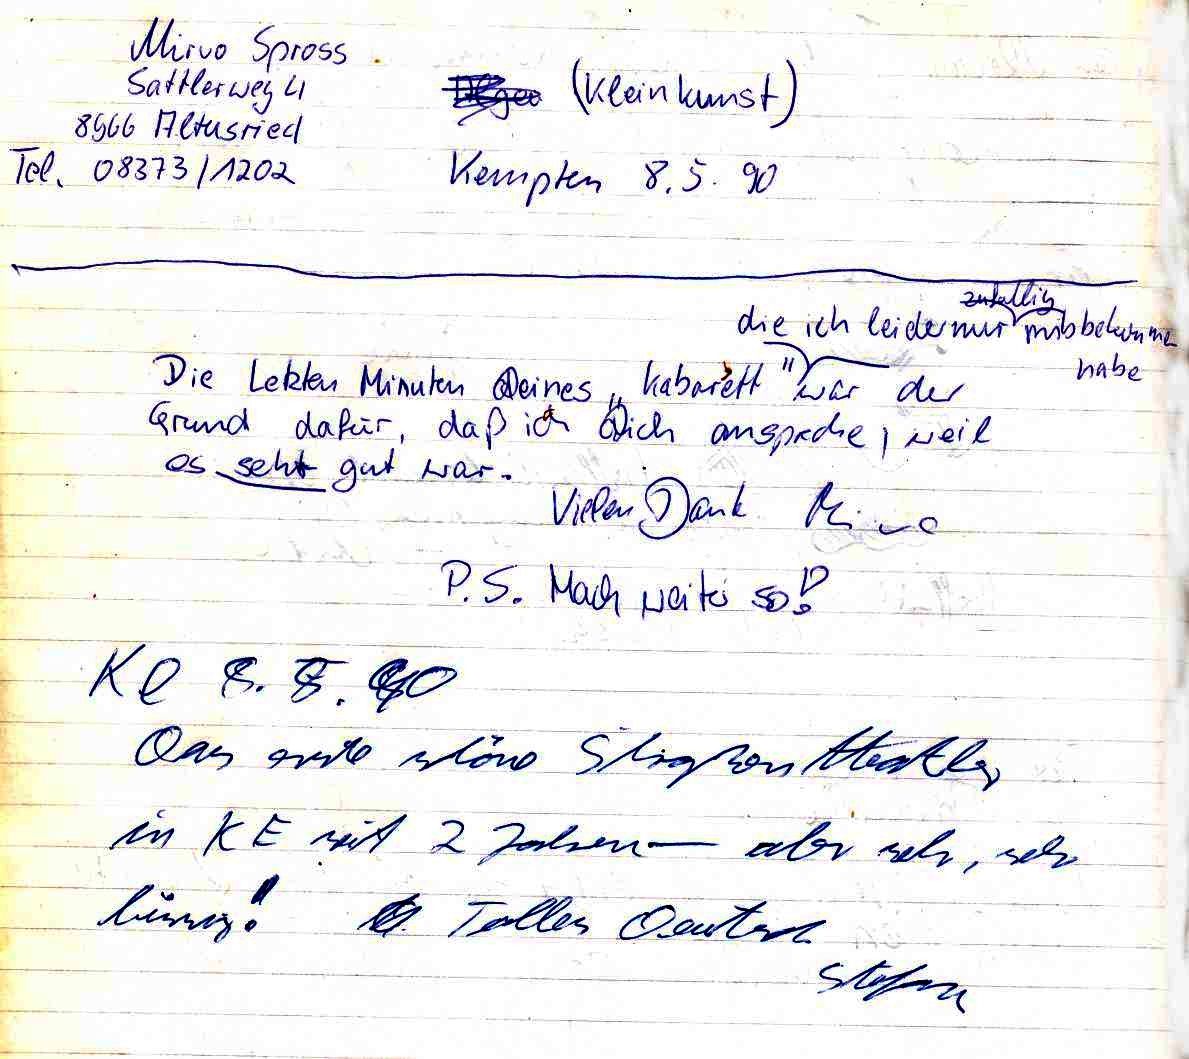 Mirvo Spross
Sattlerweg 4
8966 Altusried
Tel. 08373/1202
(Kleinkunst)
Kempten 8.5.90
zufällig
die ich leider nur mitbekommen
habe
Die Letzten Minuten Deines „Kabarett" war der
Grund dafür, daß ich Dich anspreche, weil
es sehr gut war.
Vielen Dank
P.S. Mach weiter so!
KE 8.5.90
Das erste schöne Straßentheater
in KE seit 2 Jahren — aber sehr, sehr
Tolles Deutsch
Stefan